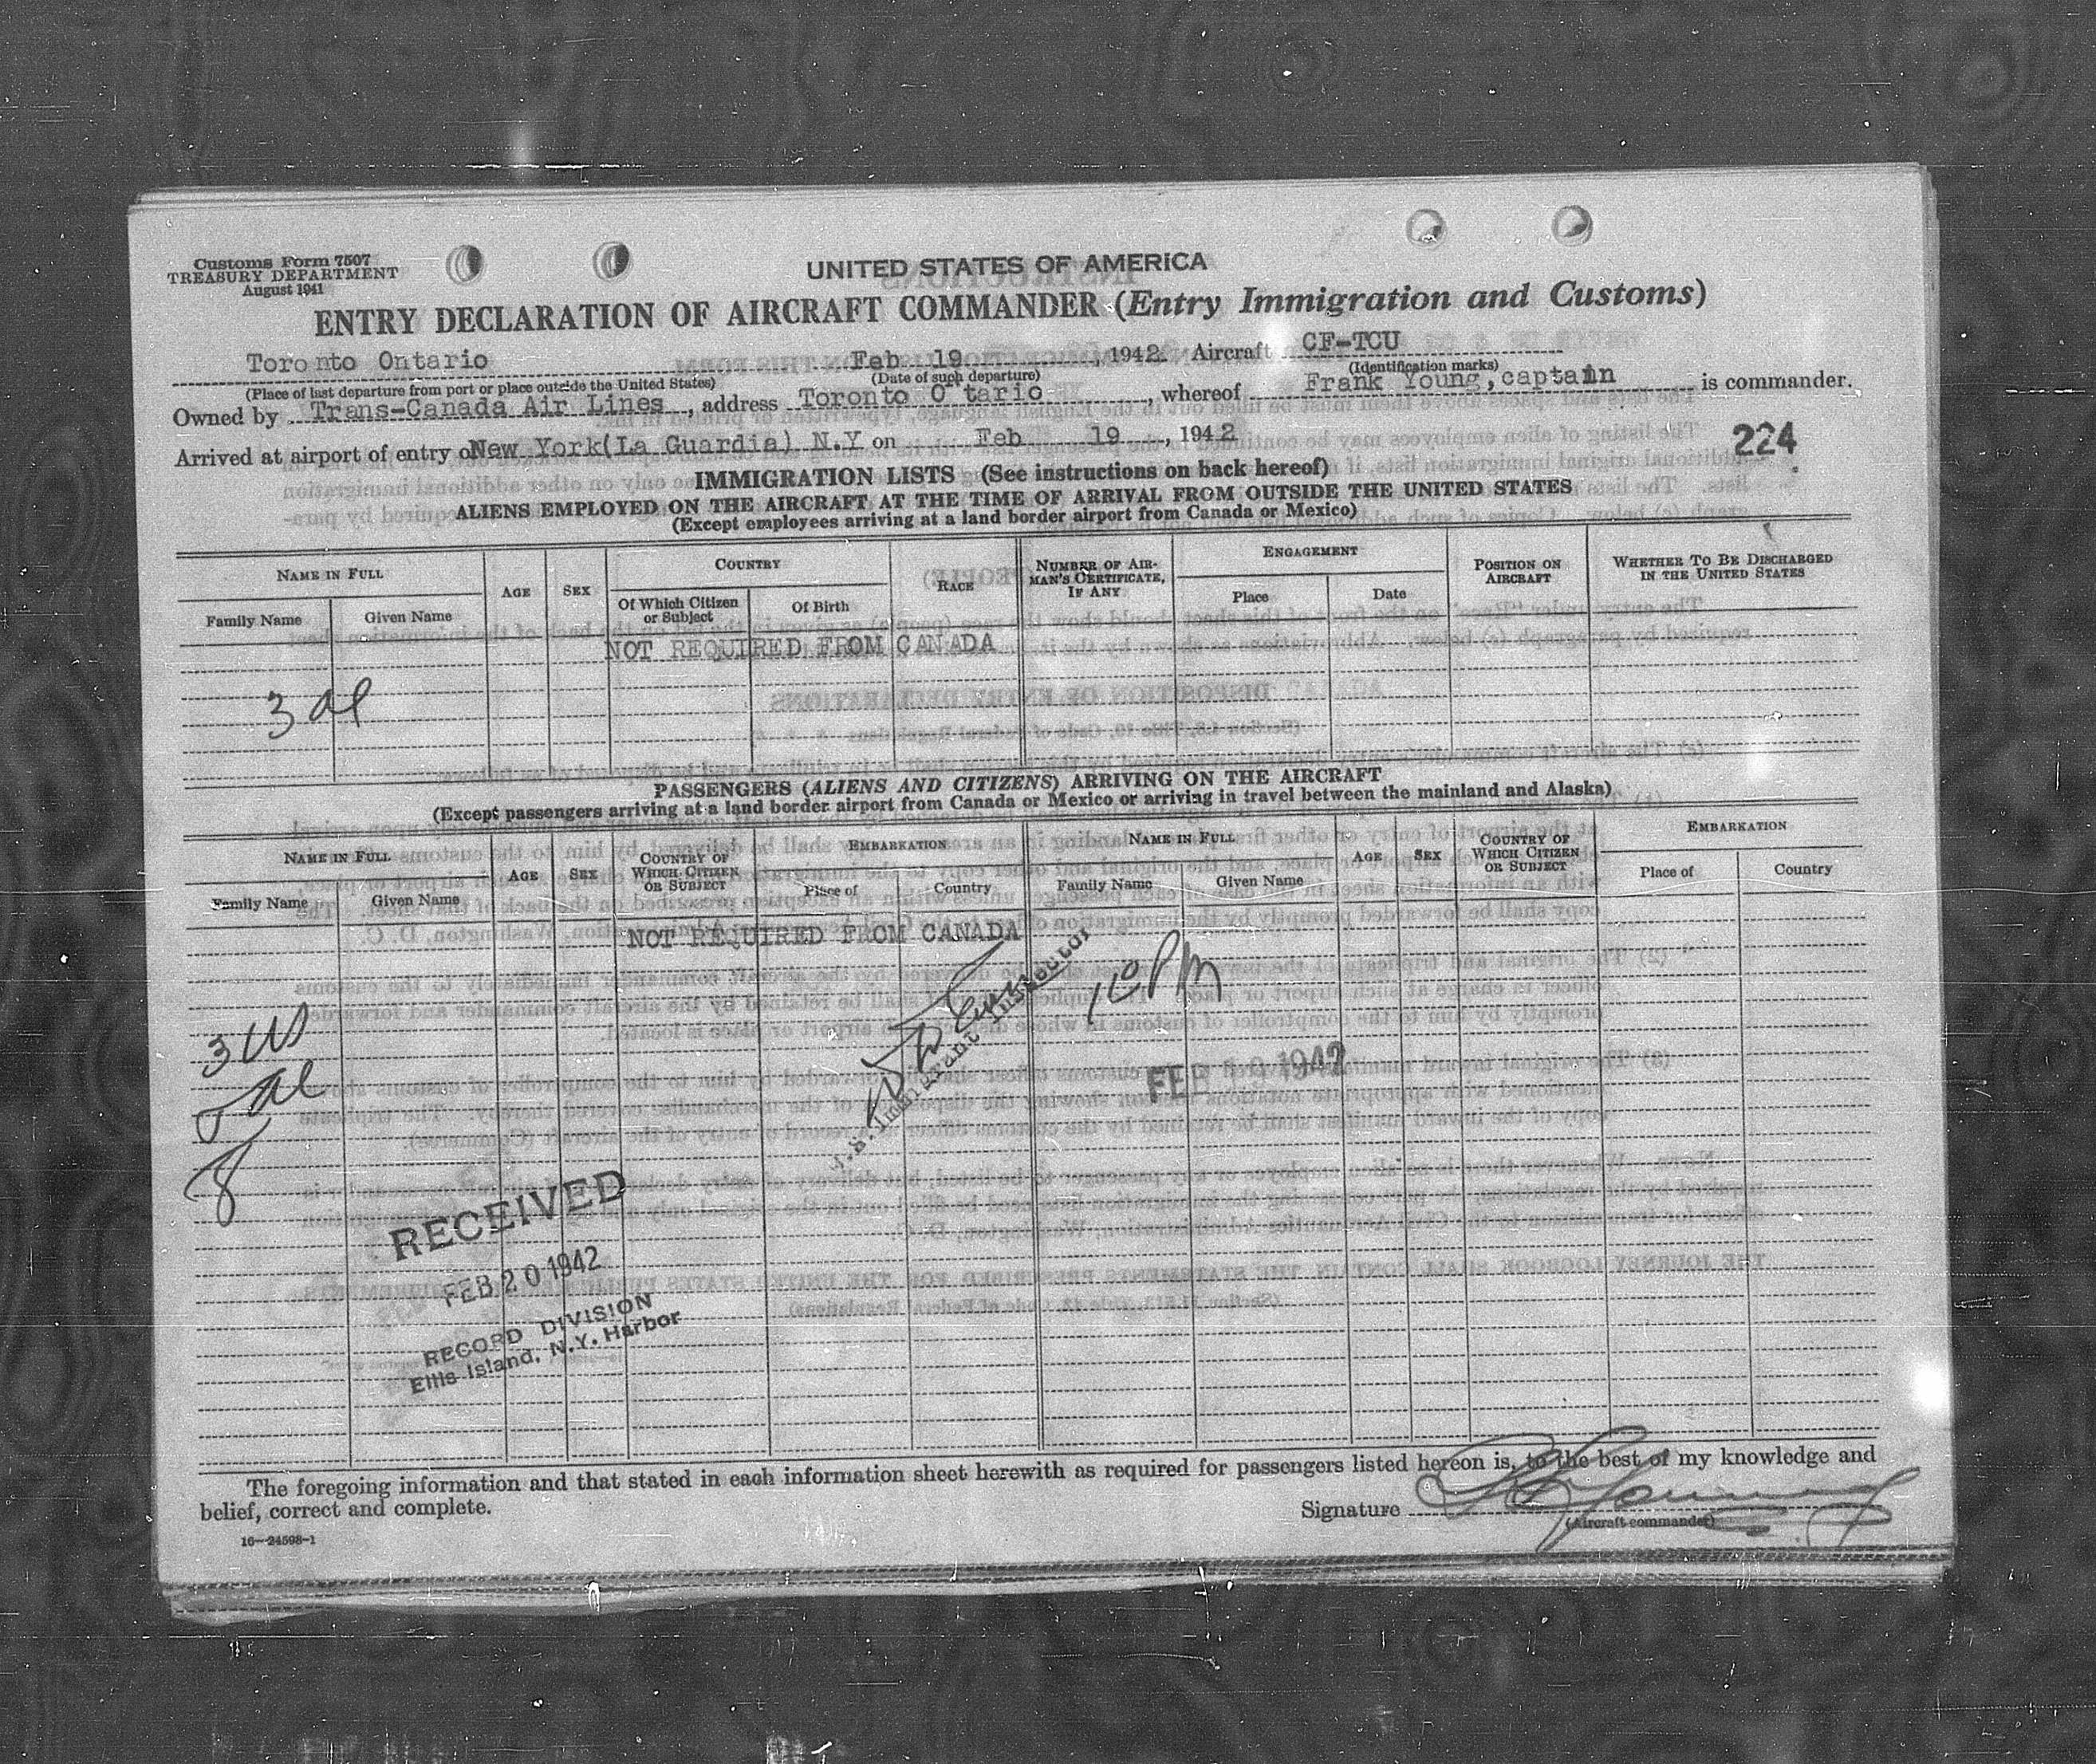 Customs Form 7507
TREASURY DEPARTMENT
August 1941
UNITED STATES OF AMERICA
ENTRY DECLARATION OF AIRCRAFT COMMANDER (Entry Immigration and Customs)
Toronto Ontario Feb 19, 1942. Aircraft CF-TCU
(Place of last departure from port or place outside the United States) (Date of such departure) (Identification marks)
Owned by Trans-Canada Air Lines, address Toronto O tario, whereof Frank Young, captain is commander.
Arrived at airport of entry of New York(La Guardia) N.Y on Feb 19, 1942
224
IMMIGRATION LISTS (See instructions on back hereof)
ALIENS EMPLOYED ON THE AIRCRAFT AT THE TIME OF ARRIVAL FROM OUTSIDE THE UNITED STATES
(Except employees arriving at a land border airport from Canada or Mexico)
NAME IN FULL AGE SEX COUNTRY RACE NUMBER OF AIRMAN'S CERTIFICATE, IF ANY ENGAGEMENT POSITION ON AIRCRAFT WHETHER TO BE DISCHARGED IN THE UNITED STATES
Family Name Given Name Of Which Citizen or Subject Of Birth Place Date
NOT REQUIRED FROM CANADA
3 al
PASSENGERS (ALIENS AND CITIZENS) ARRIVING ON THE AIRCRAFT
(Except passengers arriving at a land border airport from Canada or Mexico or arriving in travel between the mainland and Alaska)
NAME IN FULL AGE SEX COUNTRY OF WHICH CITIZEN OR SUBJECT EMBARKATION NAME IN FULL AGE SEX COUNTRY OF WHICH CITIZEN OR SUBJECT EMBARKATION
Family Name Given Name Place of Country Family Name Given Name Place of Country
NOT REQUIRED FROM CANADA
3 US
5 al
8
Immigrant Inspector
10 PM
FEB 1942
RECEIVED
FEB 20 1942
RECORD DIVISION
Ellis Island, N.Y. Harbor
The foregoing information and that stated in each information sheet herewith as required for passengers listed hereon is, to the best of my knowledge and
belief, correct and complete.
Signature
(Aircraft commander)
16—24598-1